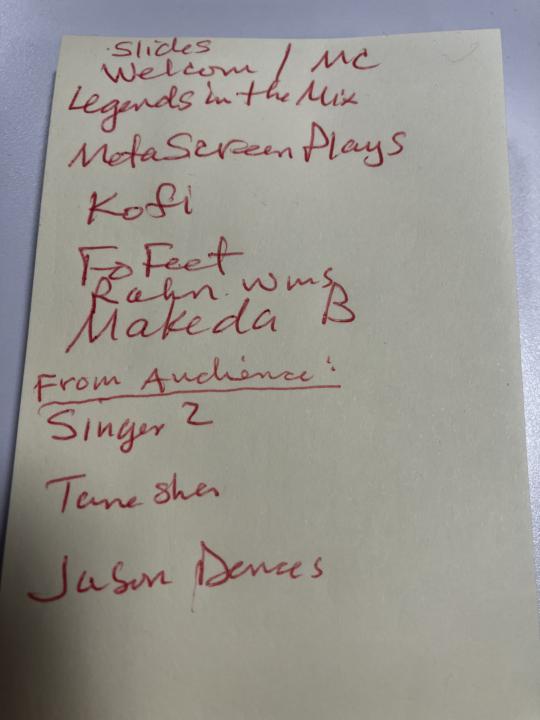 Slides
Welcom / MC
Legends in the Mix
MetaScreenPlays
Kofi
Fo Feet
Rahn. wms
Makeda B
From Audience:
Singer 2
Tanesha
Jason Dances